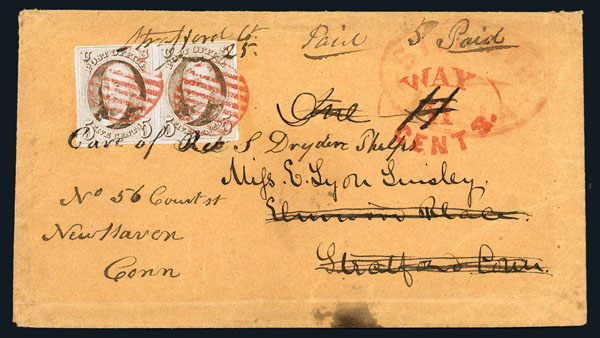 Stratford Ct.
25.
Paid 5 Paid
POST OFFICE
FIVE CENTS
POST OFFICE
FIVE CENTS
WAY
CENTS.
Care of Rev S Dryden Phelps
Miss. E. Lyon Linsley.
No 56 Court st
Elmwood Place.
New Haven
Stratford Conn.
Conn